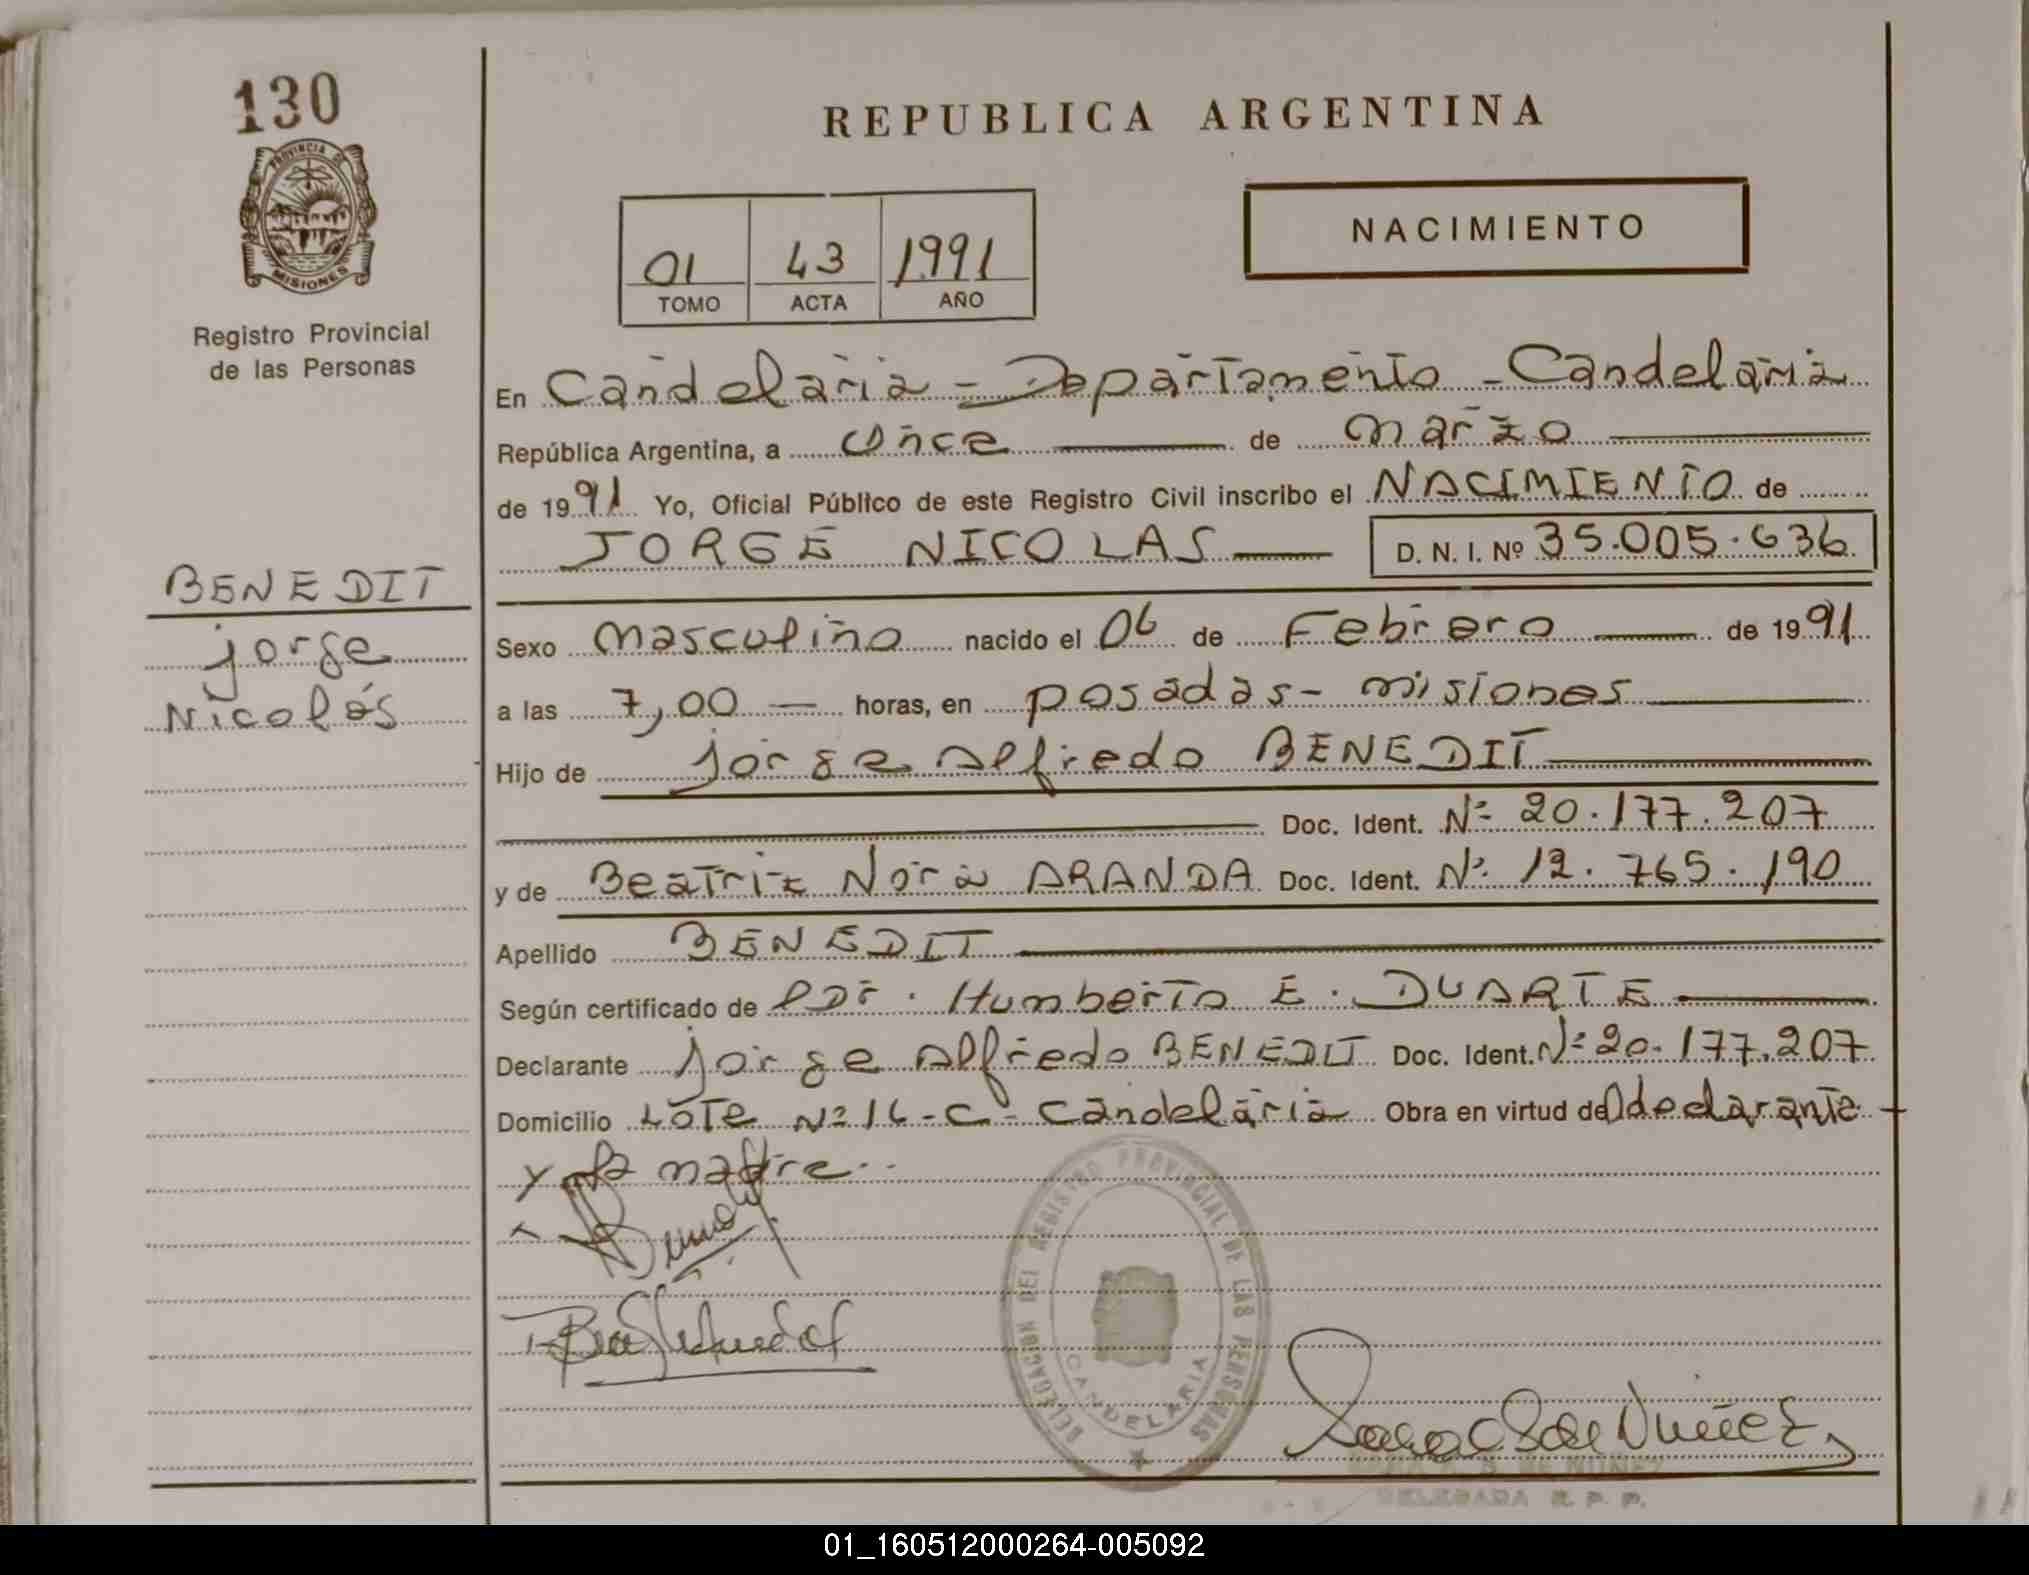 130
PROVINCIA DE
MISIONES
Registro Provincial
de las Personas
REPUBLICA ARGENTINA
NACIMIENTO
01 43 1991
TOMO ACTA AÑO
En Candelaria - Departamento - Candelaria
República Argentina, a once de marzo
de 1991 Yo, Oficial Público de este Registro Civil inscribo el NACIMIENTO de
JORGE NICOLAS D. N. I. Nº 35.005.636
BENEDIT
jorge
Nicolás
Sexo masculino nacido el 06 de Febrero de 1991
a las 7,00 horas, en posadas - misiones
Hijo de jorge Alfredo BENEDIT
Doc. Ident. Nº 20.177.207
y de Beatriz Nora ARANDA Doc. Ident. Nº 12.765.190
Apellido BENEDIT
Según certificado de Dr. Humberto E. DUARTE
Declarante jorge Alfredo BENEDIT Doc. Ident. Nº 20.177.207
Domicilio Lote Nº 16 - C - Candelaria Obra en virtud del declarante
y la madre.
DELEGACION DEL REGISTRO PROVINCIAL DE LAS PERSONAS
CANDELARIA
DE NUÑEZ
DELEGADA R. P. P.
01_160512000264-005092